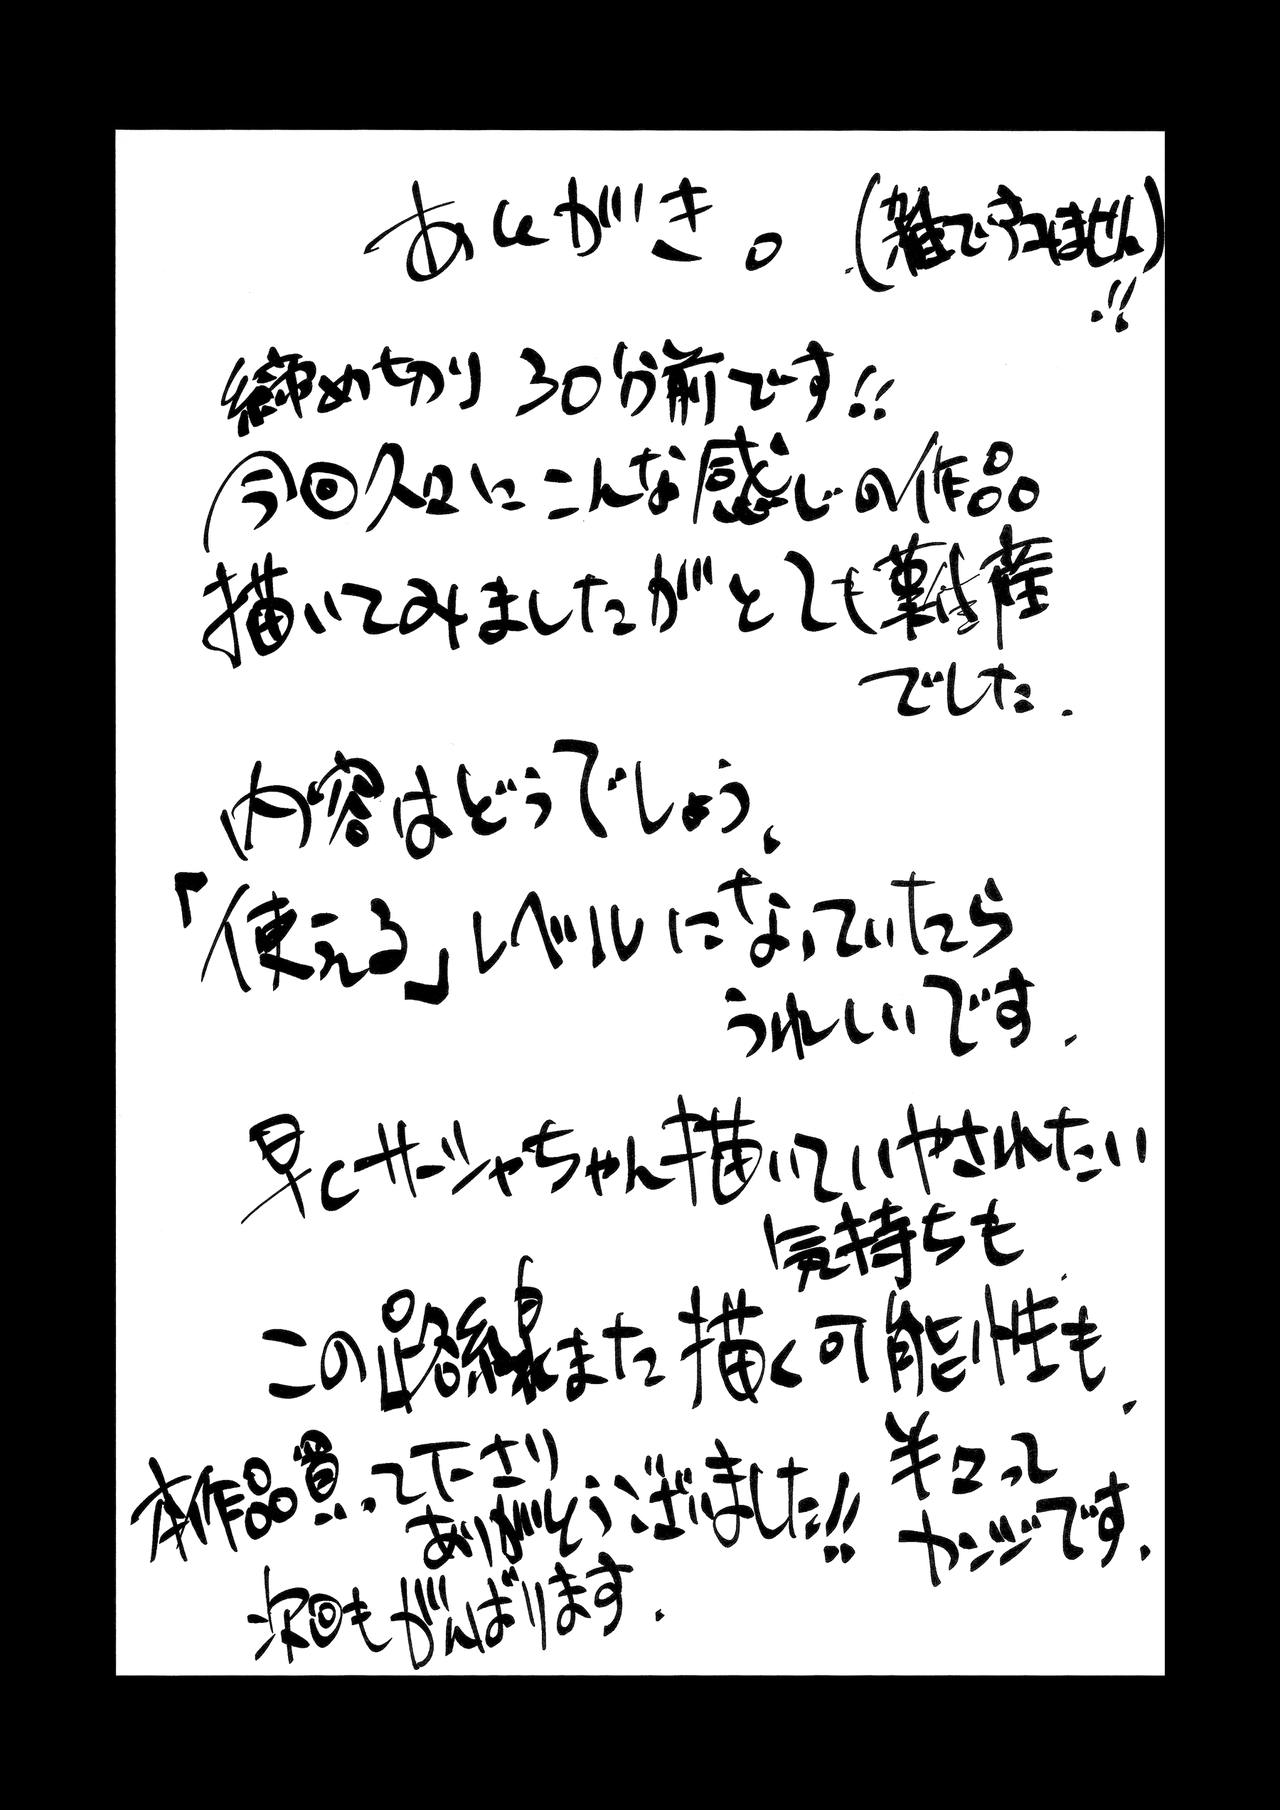 あとがき。
(雑ですみません)
!!
締め切り30分前です!!
今回久々にこんな感じの作品
描いてみましたがとても難産
でした.
内容はどうでしょう、
「使える」レベルになっていたら
うれしいです.
早くサーシャちゃん描いていやされたい
気持ちも
この路線また描く可能性も.
半々って
カンジです.
本作品買って下さり
ありがとうございました!!
次回もがんばります.